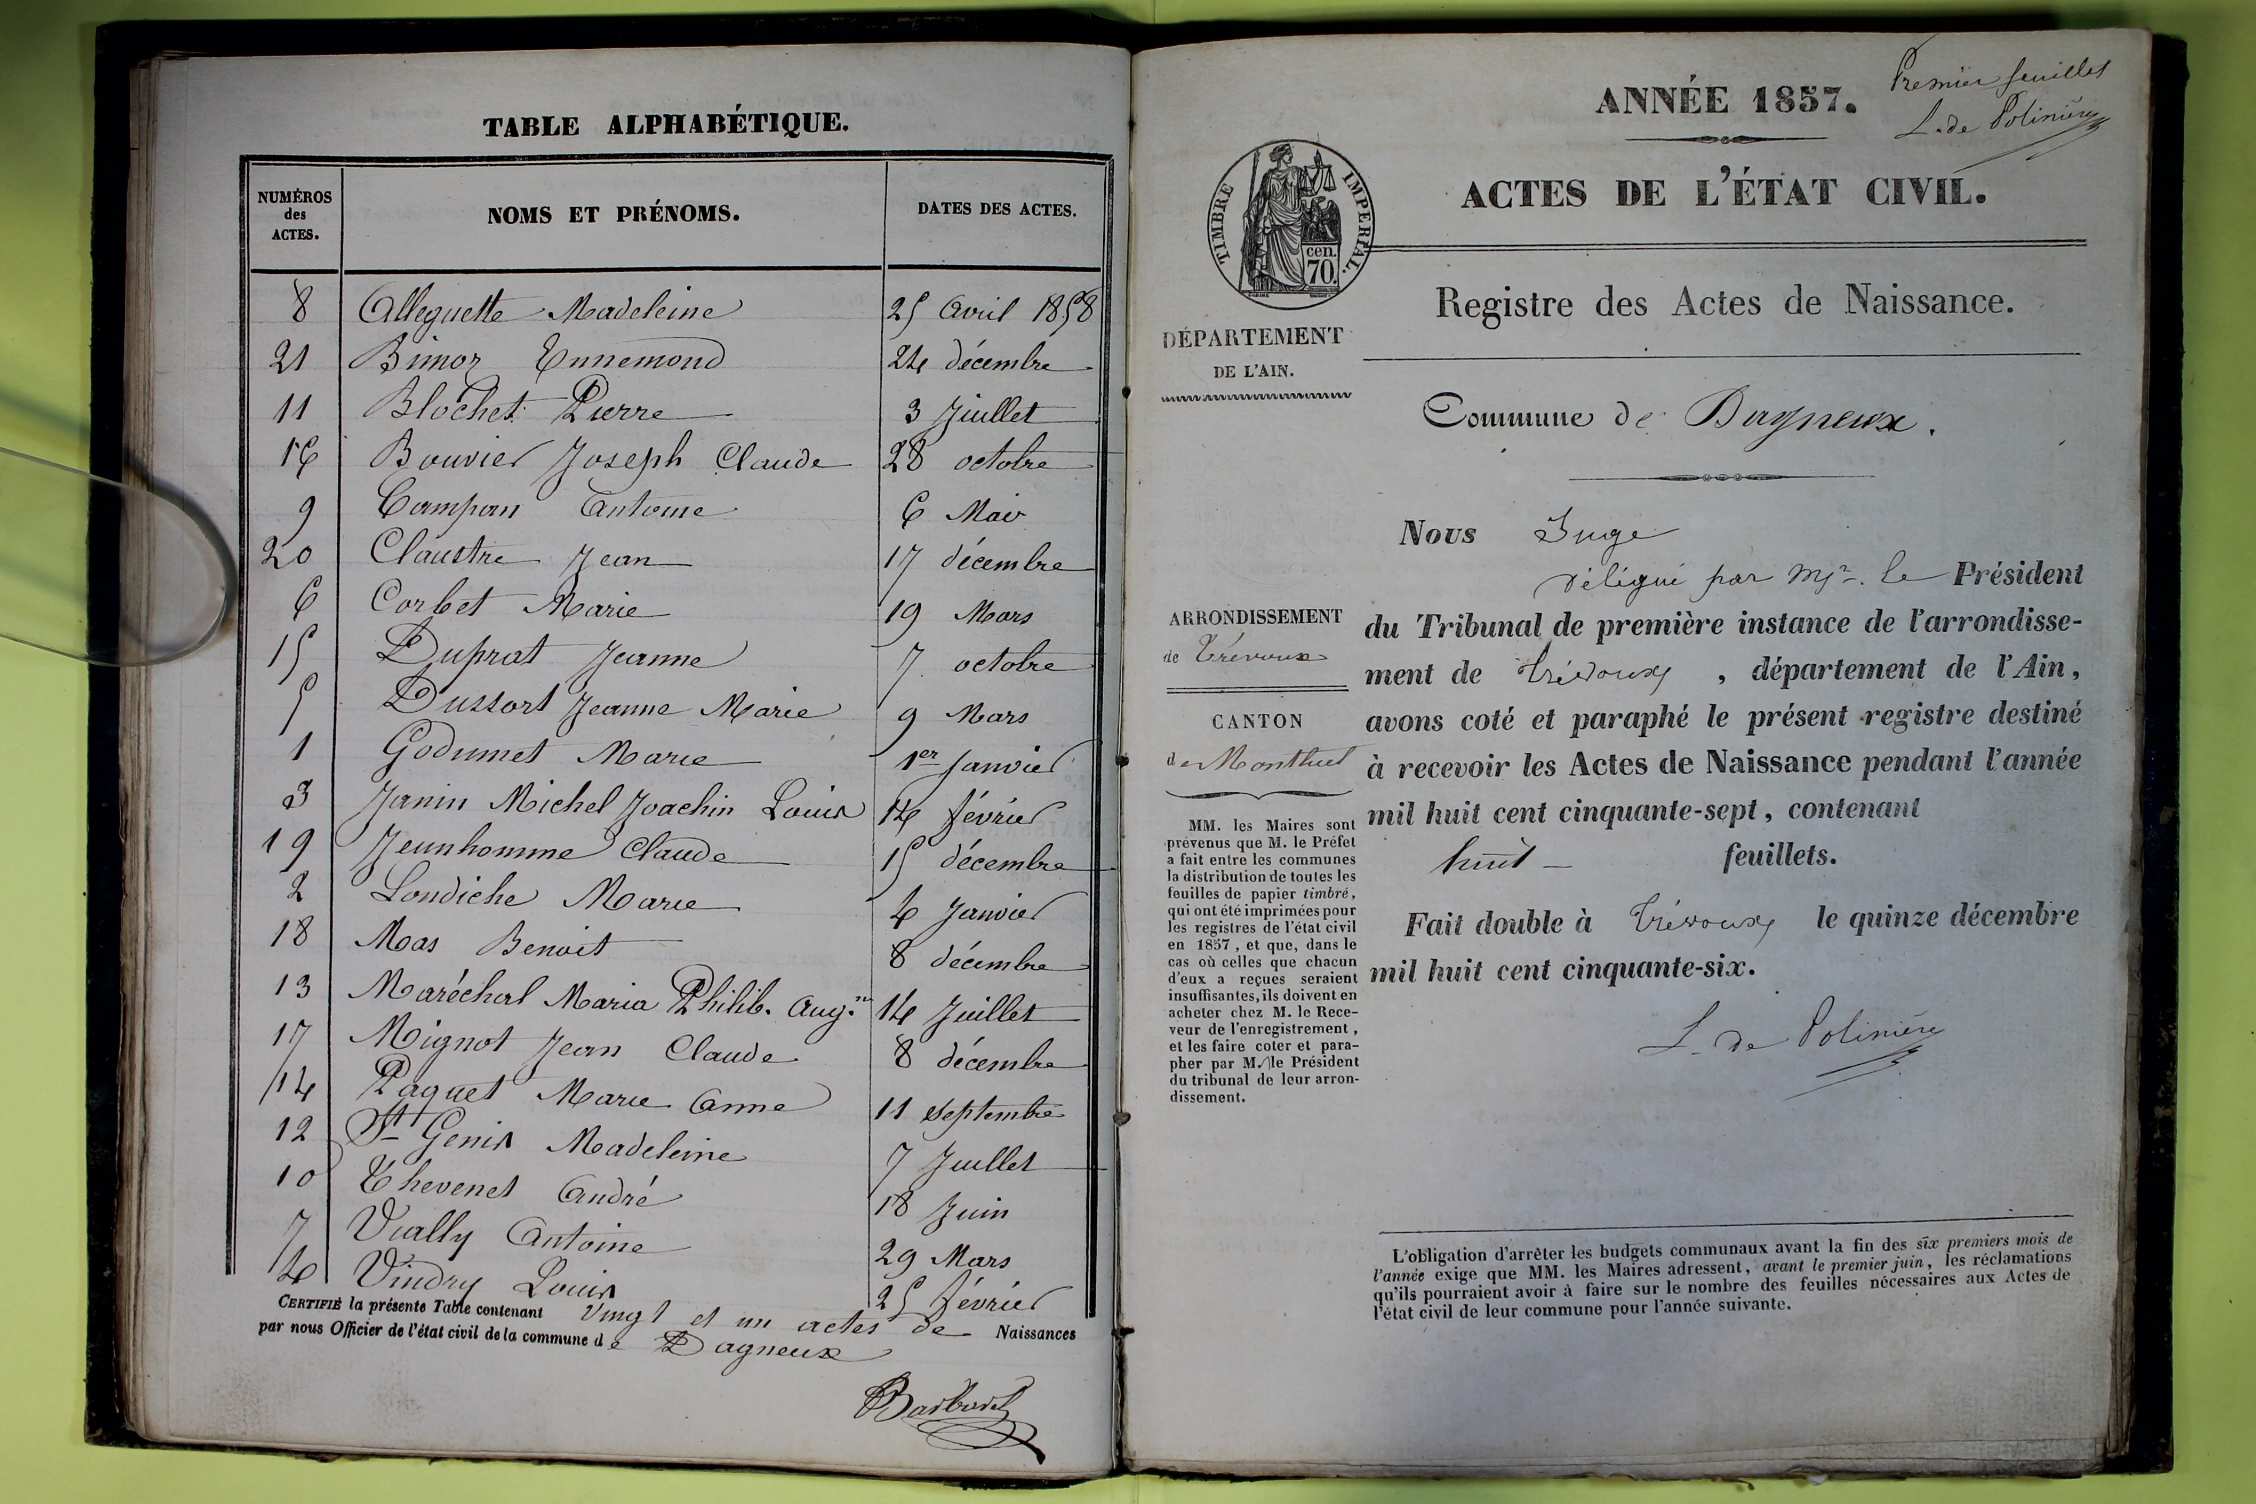 TABLE ALPHABÉTIQUE.
NUMÉROS des ACTES. NOMS ET PRÉNOMS. DATES DES ACTES.
8 Alleguette Madeleine 25 avril 1858
21 Bimoz Ennemond 24 décembre
11 Blochet Pierre 3 Juillet
16 Bouvier Joseph Claude 28 octobre
9 Campan Antoine 6 Mai
20 Claustre Jean 17 décembre
6 Corbet Marie 19 Mars
15 Duprat Jeanne 7 octobre
5 Dussort Jeanne Marie 9 Mars
1 Godumet Marie 1er Janvier
3 Janin Michel Joachin Louis 14 février
19 Jeunhomme Claude 15 décembre
2 Londiche Marie 4 Janvier
18 Mas Benoit 8 décembre
13 Maréchal Maria Philib. Aug.ne 14 Juillet
17 Mignot Jean Claude 8 décembre
14 Paquet Marie Anne 11 septembre
12 St Genis Madeleine 7 Juillet
10 Thevenet André 18 Juin
7 Vially Antoine 29 Mars
4 Vindry Louis 25 février
CERTIFIÉ la présente Table contenant vingt et un actes de Naissances
par nous Officier de l'état civil de la commune de Dagneux
Premier feuillet
L. de Polinière
ANNÉE 1857.
ACTES DE L'ÉTAT CIVIL.
TIMBRE IMPERIAL.
cen.
70.
Registre des Actes de Naissance.
DÉPARTEMENT
DE L'AIN.
Commune de Dagneux.
Nous Juge
Délégué par Mr. le Président
du Tribunal de première instance de l'arrondisse-
ment de Trévoux, département de l'Ain,
avons coté et paraphé le présent registre destiné
à recevoir les Actes de Naissance pendant l'année
mil huit cent cinquante-sept, contenant
huit feuillets.
Fait double à Trévoux le quinze décembre
mil huit cent cinquante-six.
L. de Polinière
ARRONDISSEMENT
de Trévoux
CANTON
de Montluel
MM. les Maires sont
prévenus que M. le Préfet
a fait entre les communes
la distribution de toutes les
feuilles de papier timbré,
qui ont été imprimées pour
les registres de l'état civil
en 1857, et que, dans le
cas où celles que chacun
d'eux a reçues seraient
insuffisantes, ils doivent en
acheter chez M. le Rece-
veur de l'enregistrement,
et les faire coter et para-
pher par M. le Président
du tribunal de leur arron-
dissement.
L'obligation d'arrêter les budgets communaux avant la fin des six premiers mois de
l'année exige que MM. les Maires adressent, avant le premier juin, les réclamations
qu'ils pourraient avoir à faire sur le nombre des feuilles nécessaires aux Actes de
l'état civil de leur commune pour l'année suivante.